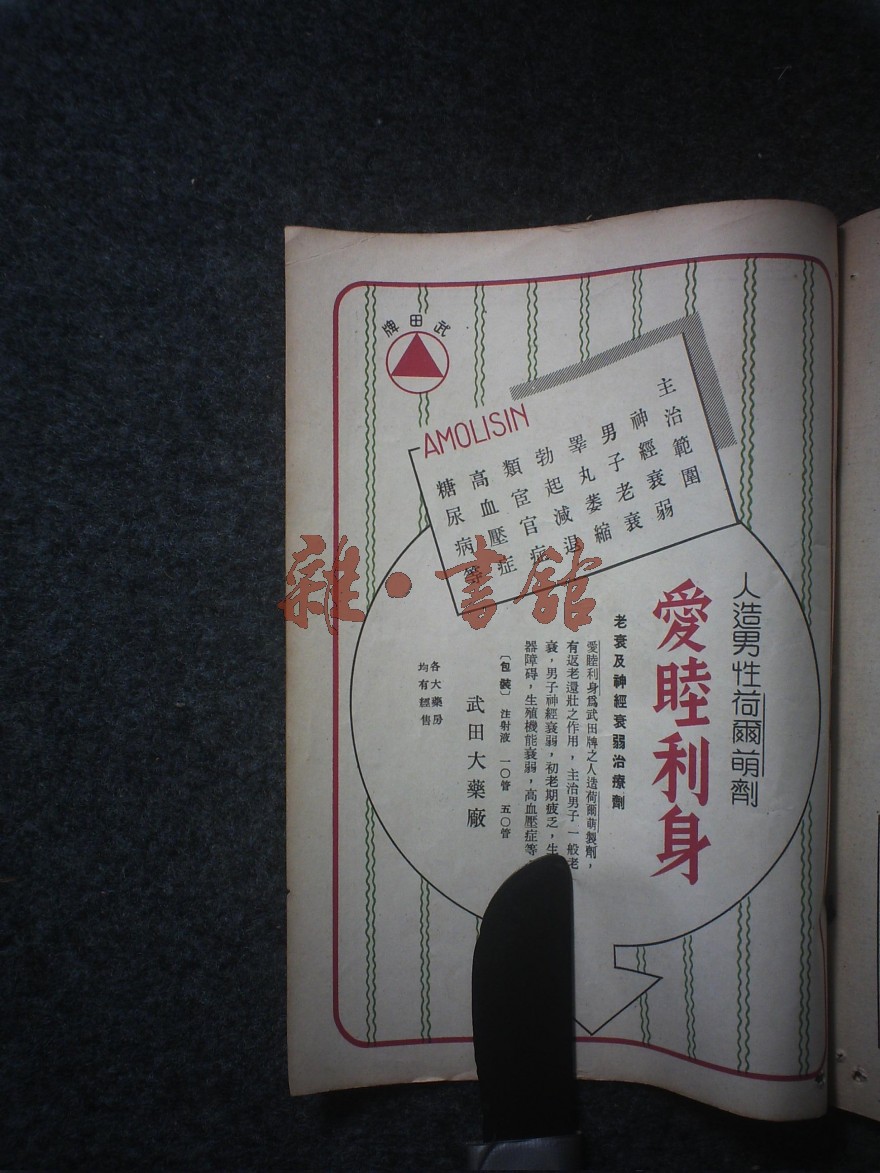 武田牌
AMOLISIN
主治範圍
神經衰弱
男子老衰
睪丸萎縮
勃起減退
類宦官症
高血壓症
糖尿病等
人造男性荷爾萌劑
愛睦利身
老衰及神經衰弱治療劑
愛睦利身爲武田牌之人造荷爾萌製劑，
有返老還壯之作用，主治男子一般老
衰，男子神經衰弱，初老期疲乏，生
器障碍，生殖機能衰弱，高血壓症等
〔包裝〕注射液 一〇管 五〇管
武田大藥廠
各大藥房
均有經售
雜·書館